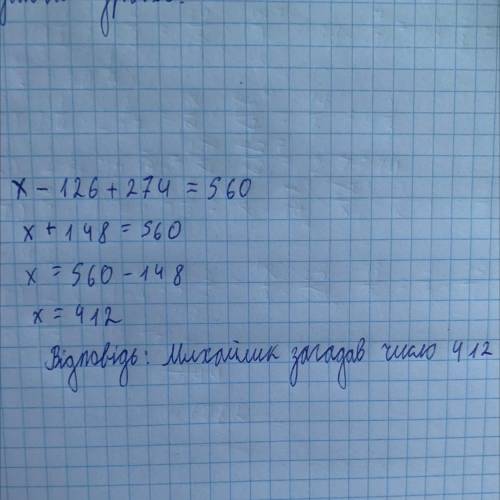 x - 126 + 274 = 560
x + 148 = 560
x = 560 - 148
x = 412
Відповідь: Михайлик загадав число 412